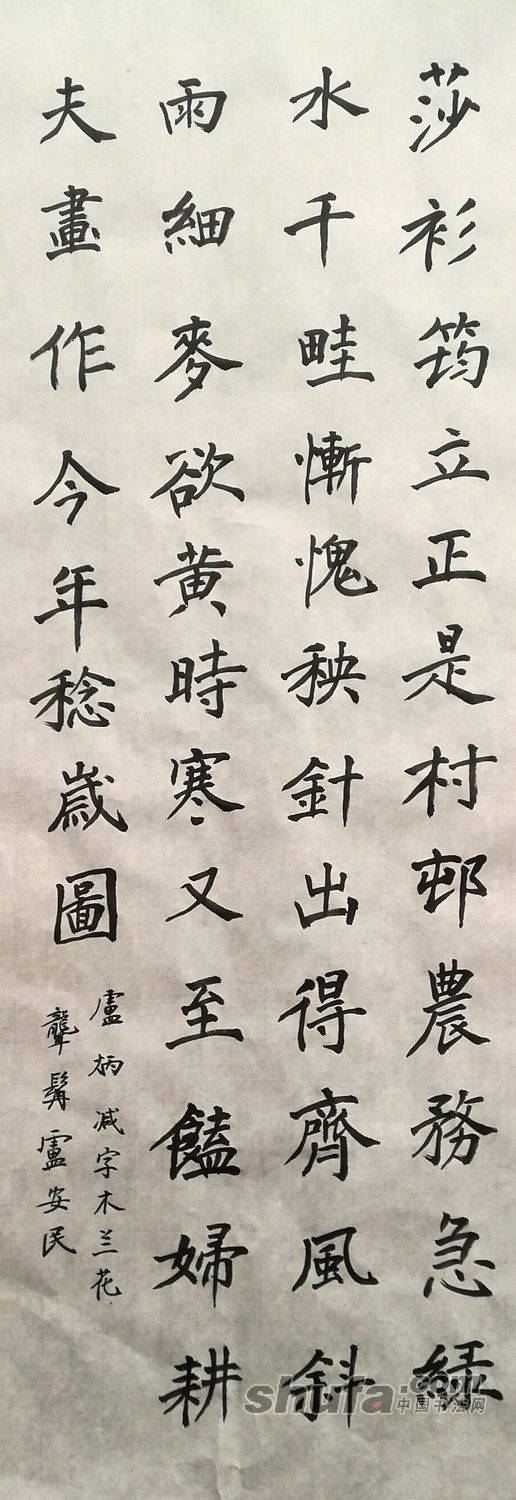 莎衫筠立正是村邨農務急綠
水千畦慚愧秧針出得齊風斜
雨細麥欲黄時寒又至饁婦耕
夫畫作今年稔歲圖
盧炳减字木兰花
聾髯盧安民
shufa.com
中国书法网